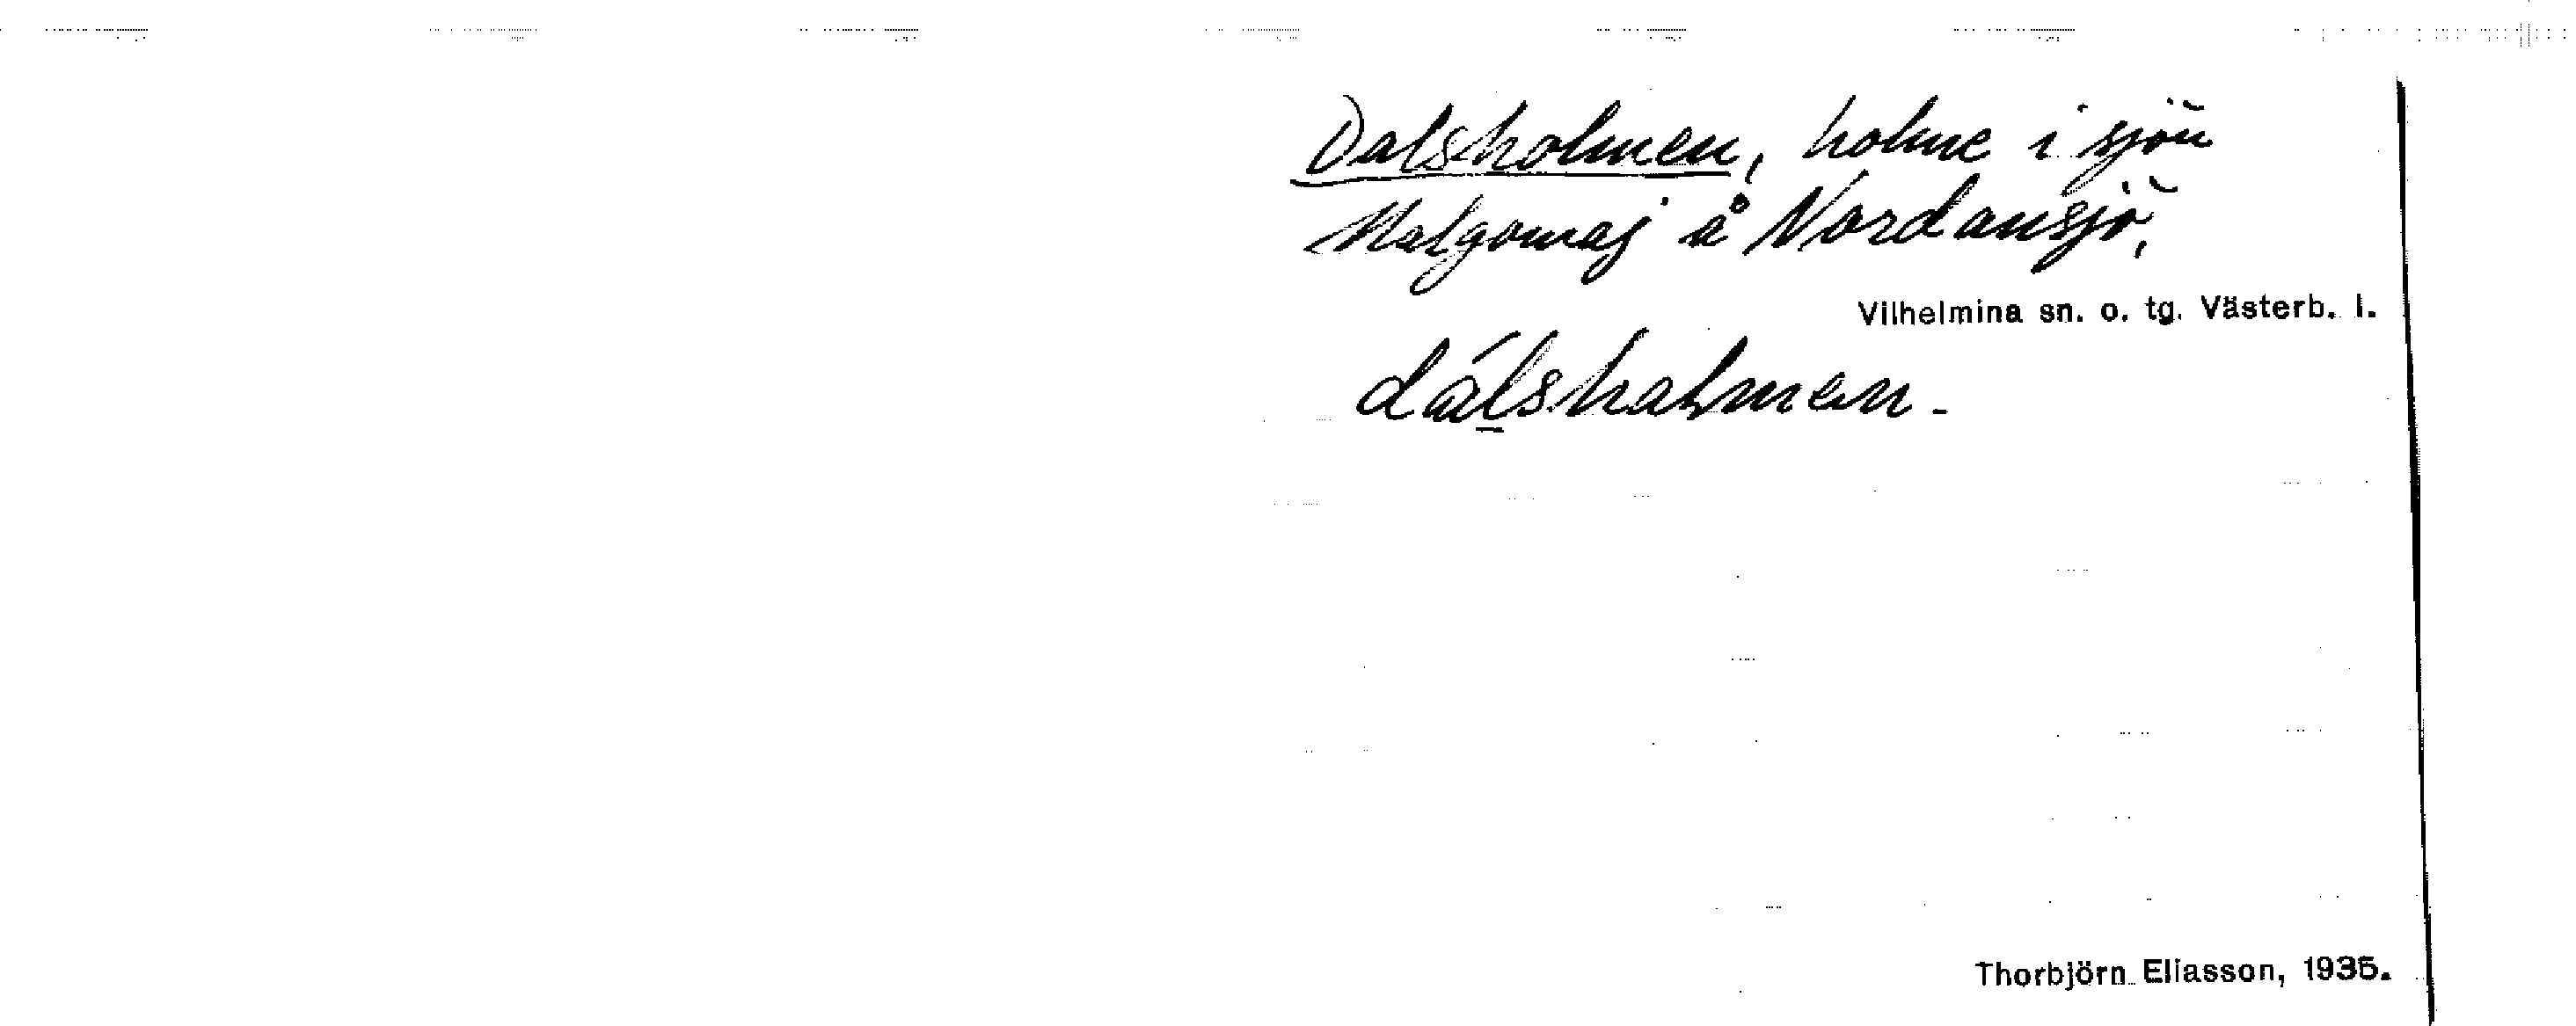 Dalsholmen, holme i sjön
Malgomaj å Nordansjö,
Vilhelmina sn. o. tg. Västerb. l.
dálshalmen.
Thorbjörn Eliasson, 1935.